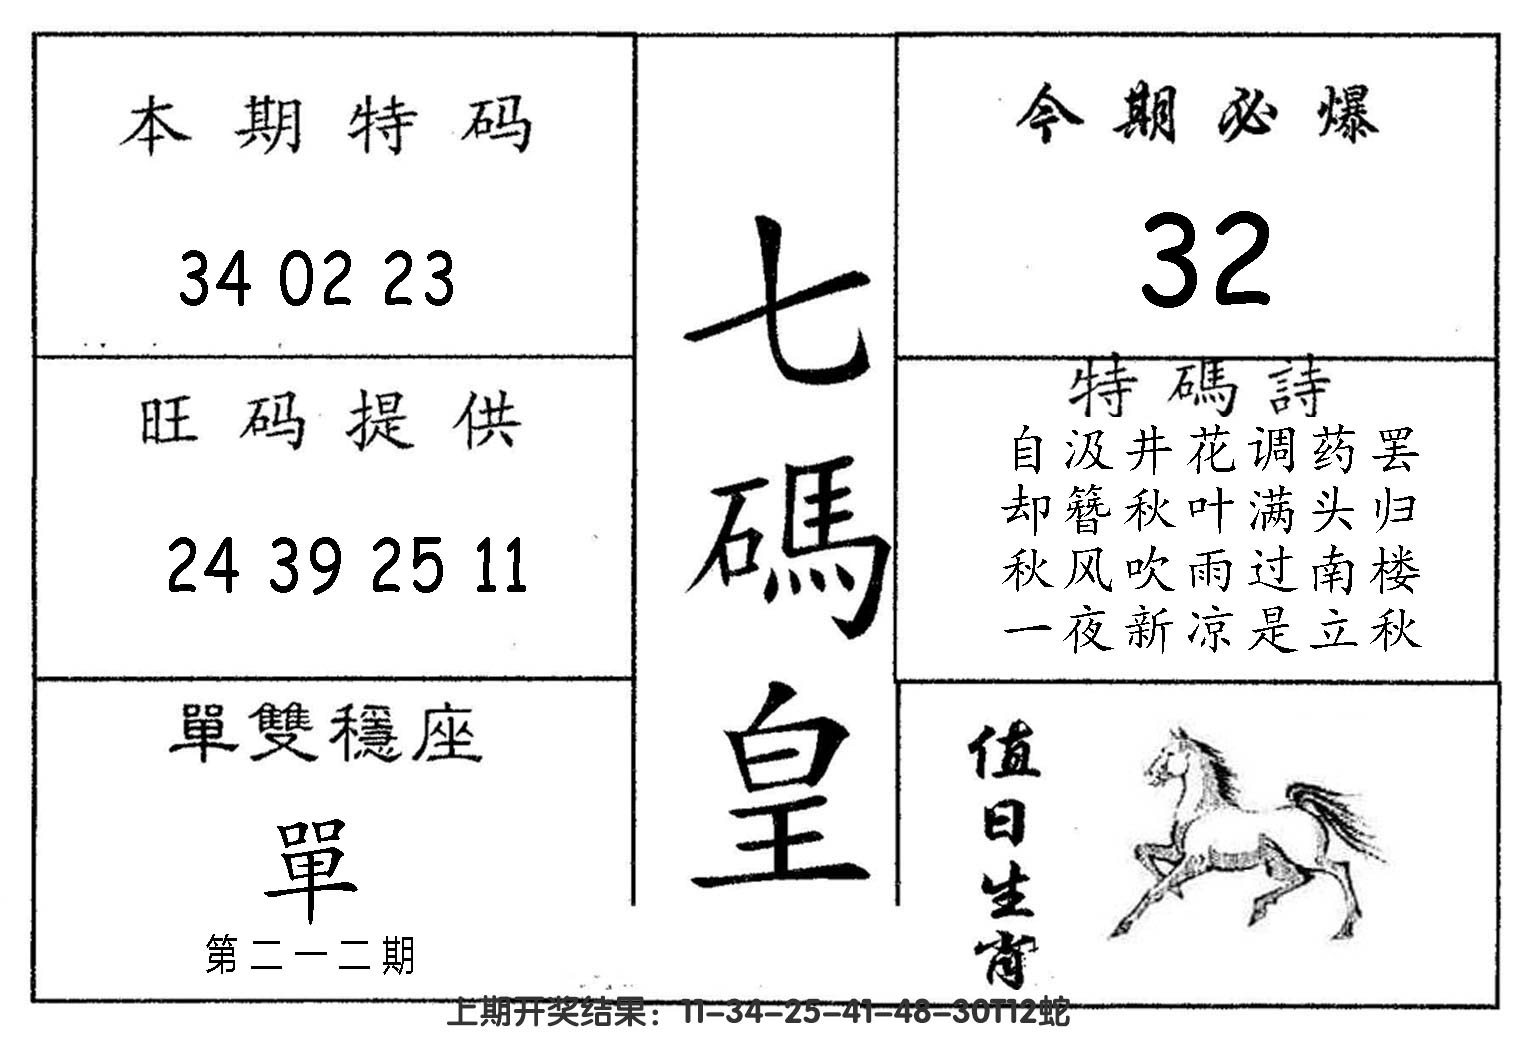 本期特码
34 02 23
旺码提供
24 39 25 11
單雙穩座
單
第二一二期
七碼皇
今期必爆
32
特碼詩
自汲井花调药罢
却簪秋叶满头归
秋风吹雨过南楼
一夜新凉是立秋
值日生肖
上期开奖结果：11-34-25-41-48-30T12蛇